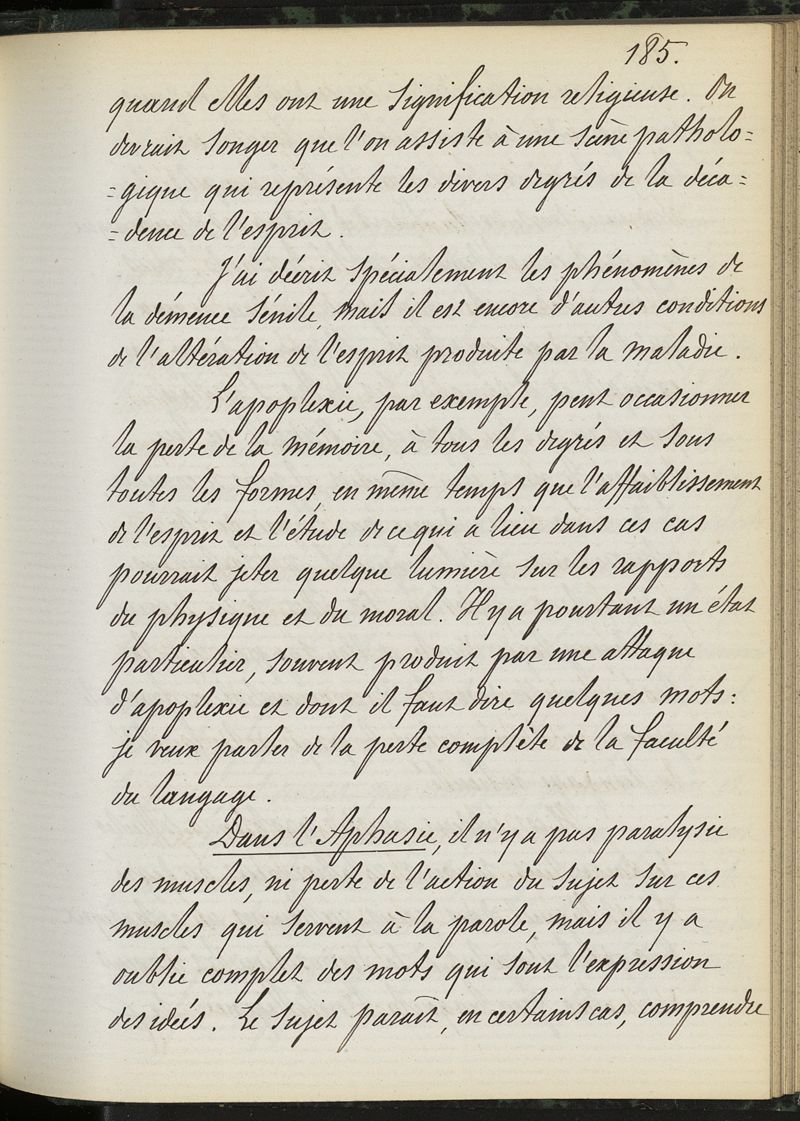 185.
quand elles ont une signification religieuse. On
devrait songer que l'on assiste à une scène patholo=
=gique qui représente les divers degrés de la déca=
=dence de l'esprit.
J'ai décrit spécialement les phénomènes de
la démence sénile, mais il est encore d'autres conditions
de l'altération de l'esprit produite par la maladie.
L'apoplexie, par exemple, peut occasionner
la perte de la mémoire, à tous les degrés et sous
toutes les formes, en même temps que l'affaiblissement
de l'esprit et l'étude de ce qui a lieu dans ces cas
pourrait jeter quelque lumière sur les rapports
du physique et du moral. Il y a pourtant un état
particulier, souvent produit par une attaque
d'apoplexie et dont il faut dire quelques mots:
je veux parler de la perte complète de la faculté
du langage.
Dans l'Aphasie, il n'y a pas paralysie
des muscles, ni perte de l'action du sujet sur ces
muscles qui servent à la parole, mais il y a
oublie complet des mots qui sont l'expression
des idées. Le sujet paraît, en certains cas, comprendre